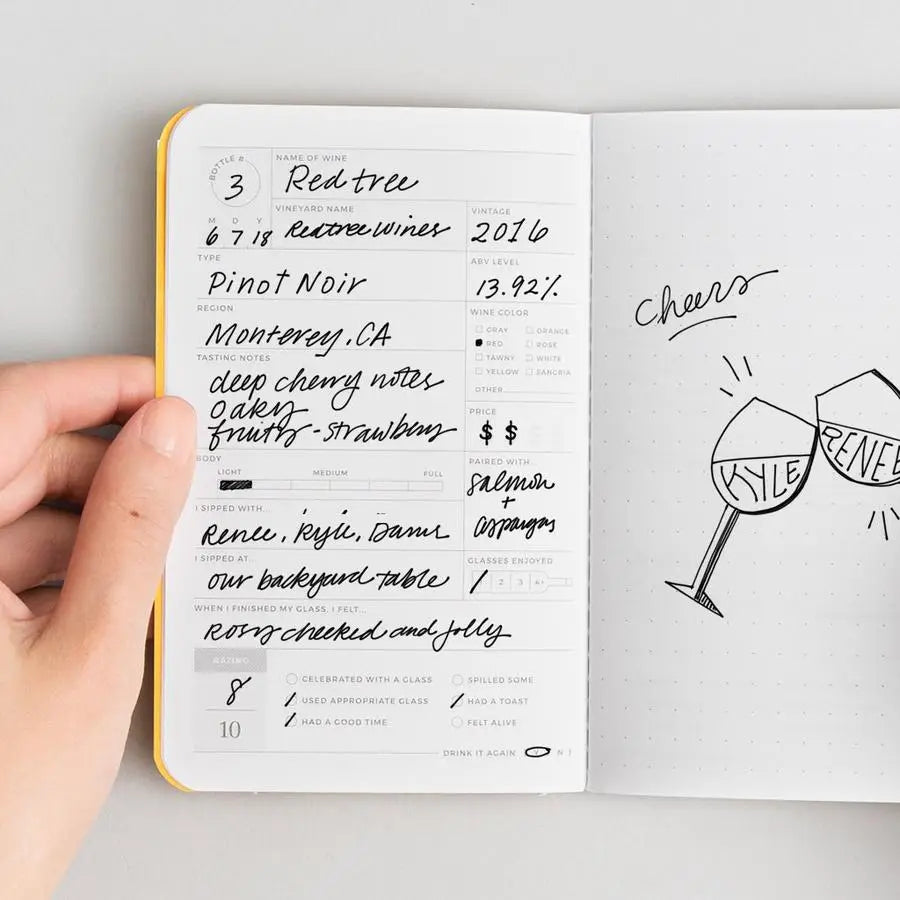 BOTTLE #
3
NAME OF WINE
Redtree
M D Y
6 7 18
VINEYARD NAME
Redtree Wines
VINTAGE
2016
TYPE
Pinot Noir
ABV LEVEL
13.92%
REGION
Monterey, CA
WINE COLOR
GRAY ORANGE
RED ROSE
TAWNY WHITE
YELLOW SANGRIA
OTHER
TASTING NOTES
deep cherry notes
oaky
fruity - strawberry
PRICE
$ $
BODY
LIGHT MEDIUM FULL
PAIRED WITH...
salmon
+
asparagus
I SIPPED WITH...
Renee, Kyle,
I SIPPED AT...
our backyard table
GLASSES ENJOYED
2 3 4+
WHEN I FINISHED MY GLASS, I FELT...
Rosy cheeked and jolly
RATING
8
10
CELEBRATED WITH A GLASS SPILLED SOME
USED APPROPRIATE GLASS HAD A TOAST
HAD A GOOD TIME FELT ALIVE
DRINK IT AGAIN Y N
Cheers
KYLE
RENEE